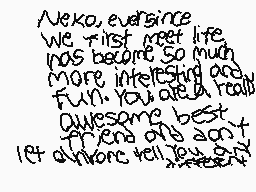 Neko, eversince
we first meet life
has become so much
more interesting and
fun. You are a really
awesome best
friend and don't
let anyone tell you any
different